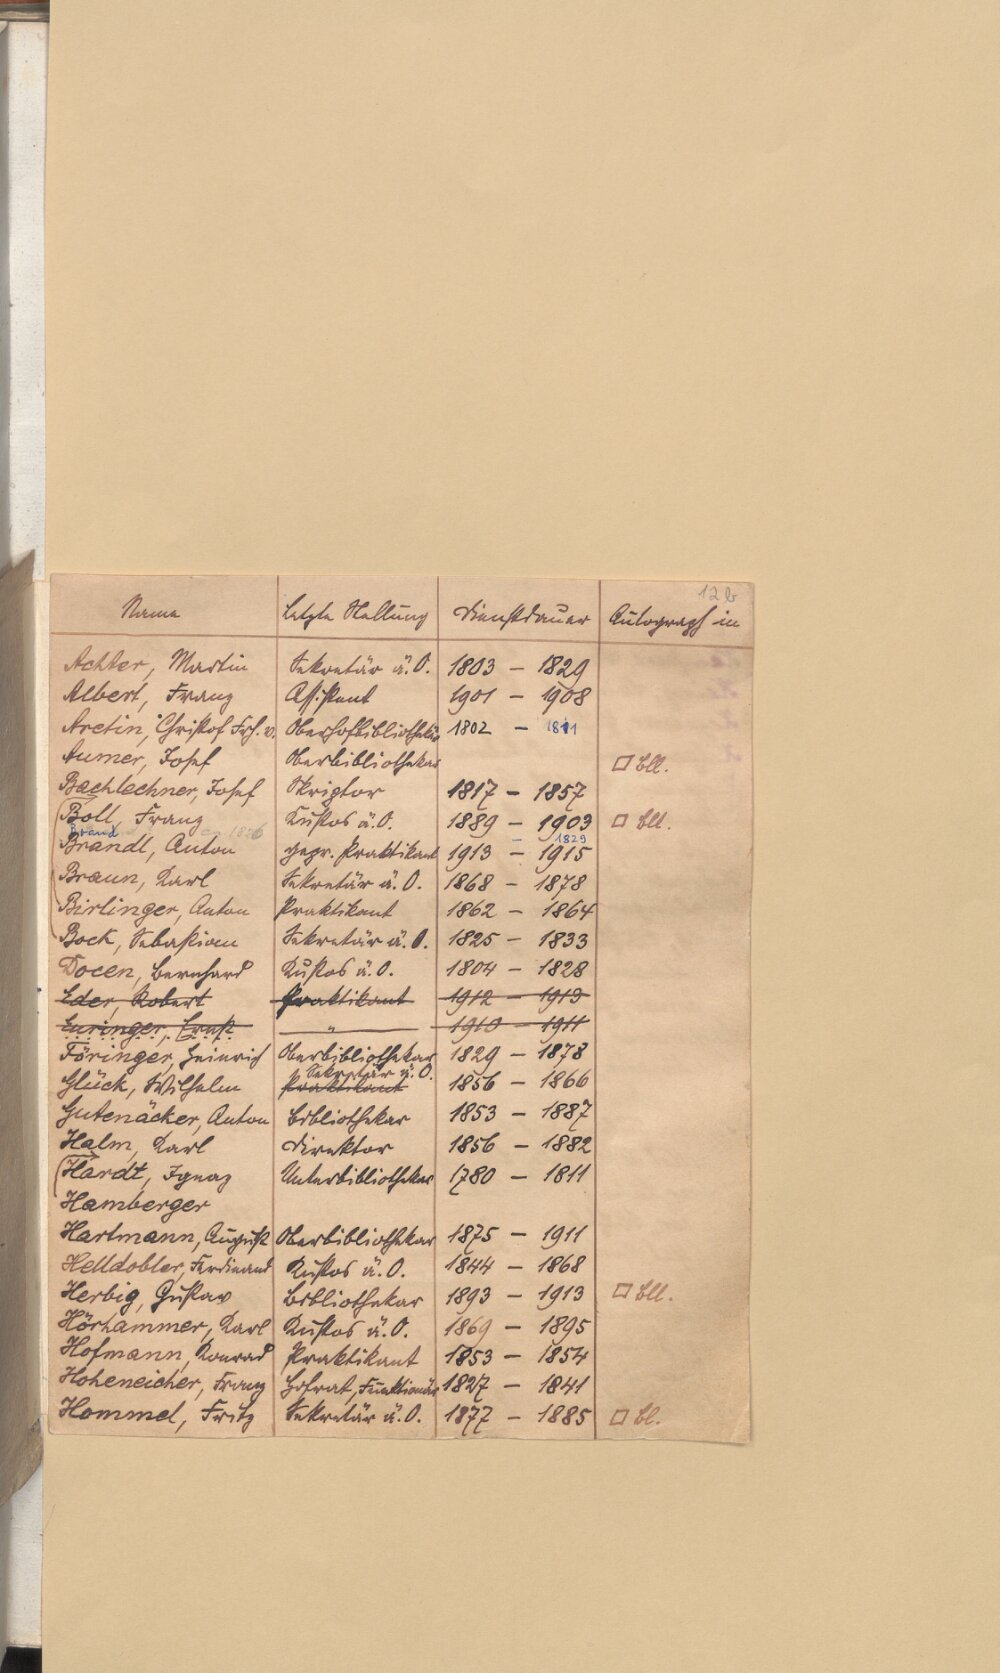 12b
Name Letzte Stellung Dienstdauer Autograph in
Achter, Martin Sekretär ä. O. 1803 – 1829
Albert, Franz Assistent 1901 – 1908
Aretin, Christof Frh. v. Oberhofbibliothekar 1802 – 1811
Aumer, Josef Oberbibliothekar □ bll.
Bachlechner, Josef Skriptor 1817 – 1857
Boll, Franz Kustos ä. O. 1889 – 1903 □ bll.
Brand 1826 – 1829
Brandl, Anton gepr. Praktikant 1913 – 1915
Braun, Karl Sekretär ä. O. 1868 – 1878
Birlinger, Anton Praktikant 1862 – 1864
Bock, Sebastian Sekretär ä. O. 1825 – 1833
Docen, Bernhard Kustos ä. O. 1804 – 1828
Eder, Robert Praktikant 1912 – 1913
Euringer, Ernst " 1910 – 1911
Föringer, Heinrich Oberbibliothekar 1829 – 1878
Sekretär ä. O.
Glück, Wilhelm Praktikant 1856 – 1866
Gutenäcker, Anton Bibliothekar 1853 – 1887
Halm, Karl Direktor 1856 – 1882
Hardt, Ignaz Unterbibliothekar 1780 – 1811
Hamberger
Hartmann, August Oberbibliothekar 1875 – 1911
Helldobler, Ferdinand Kustos ä. O. 1844 – 1868
Herbig, Gustav Bibliothekar 1893 – 1913 □ bll.
Hörhammer, Karl Kustos ä. O. 1869 – 1895
Hofmann, Konrad Praktikant 1853 – 1854
Hoheneicher, Franz Hofrat, Funktionär 1827 – 1841
Hommel, Fritz Sekretär ä. O. 1877 – 1885 □ bl.